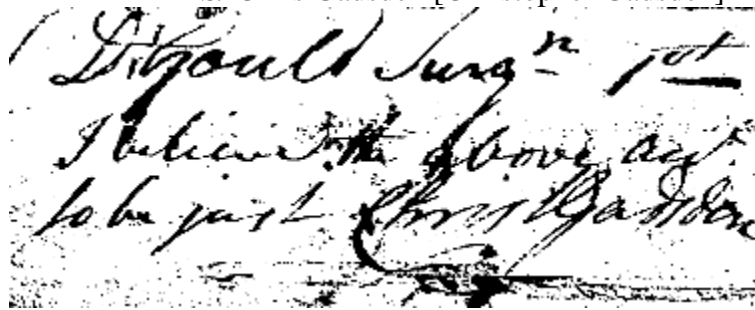 Gould Surgn 1st
I believe the above acct
to be just Christ Gadsden